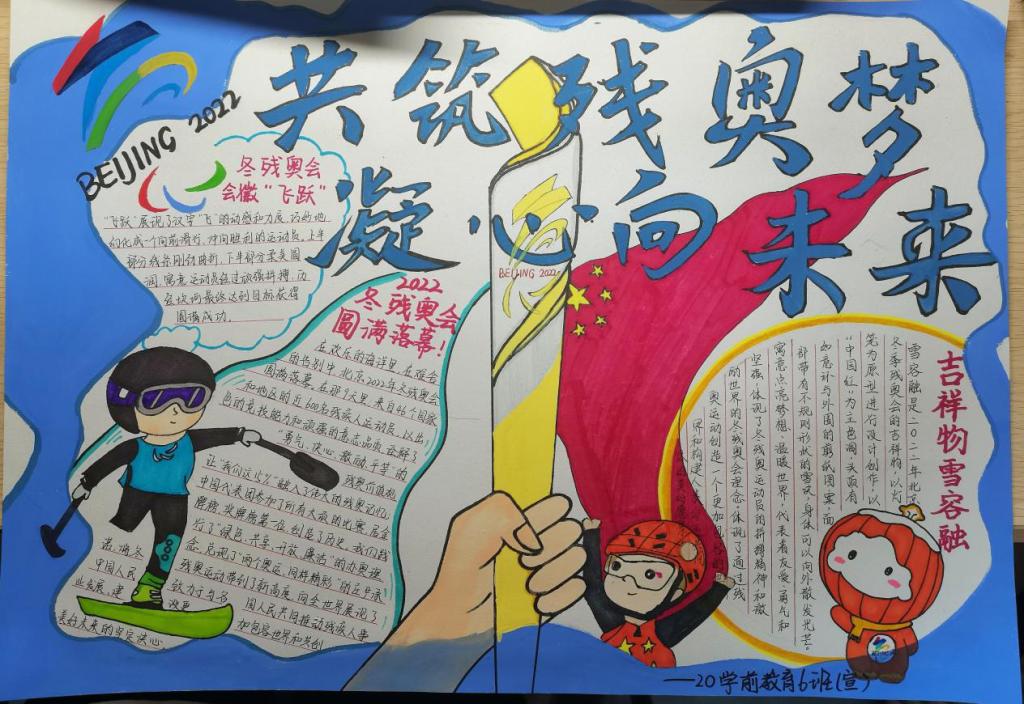 BEIJING 2022
共筑残奥梦
凝心向未来
冬残奥会
会徽"飞跃"
"飞跃"展现了汉字"飞"的动感和力度,巧妙地
幻化成一个向前滑行,冲向胜利的运动员。上半
部分线条刚劲曲折,下半部分柔美圆
润,寓意运动员经过顽强拼搏,历
经坎坷最终达到目标获得
圆满成功。
BEIJING 2022
2022
冬残奥会
圆满落幕!
在欢乐的海洋里,在难舍
的告别中,北京2022年冬残奥会
圆满落幕。在那9天里,来自46个国家
和地区的近600名残疾人运动员,以出
色的竞技能力和顽强的意志品质,诠释了
"勇气、决心、激励、平等"的残奥价值观,
让"我们这15%"融入了伟大的残奥记忆。
中国代表团参加了所有大项的比赛,居金
牌榜、奖牌榜第一位,创造了历史。我们践
行了"绿色、共享、开放、廉洁"的办奥理
念,兑现了"两个奥运,同样精彩"的庄严承
诺,将冬残奥运动带到了新高度,向全世界展现了
中国人民致力于与各国人民共同推动残疾人事
业发展、建设更加包容世界和共创
美好未来的坚定决心。
吉祥物雪容融
雪容融是二〇二二年北京
冬季残奥会的吉祥物,以灯
笼为原型进行设计创作,以
"中国红"为主色调,头顶有
如意环与外围的剪纸图案,面
部带有不规则形状的雪块,身体可以向外散发光芒。
寓意点亮梦想,温暖世界,代表着友爱、勇气和
坚强,体现了冬残奥运动员的拼搏精神和激
的世界的冬残奥会理念,体现了通过残
奥运动创造一个更加包容的
——20学前教育6班(宣)